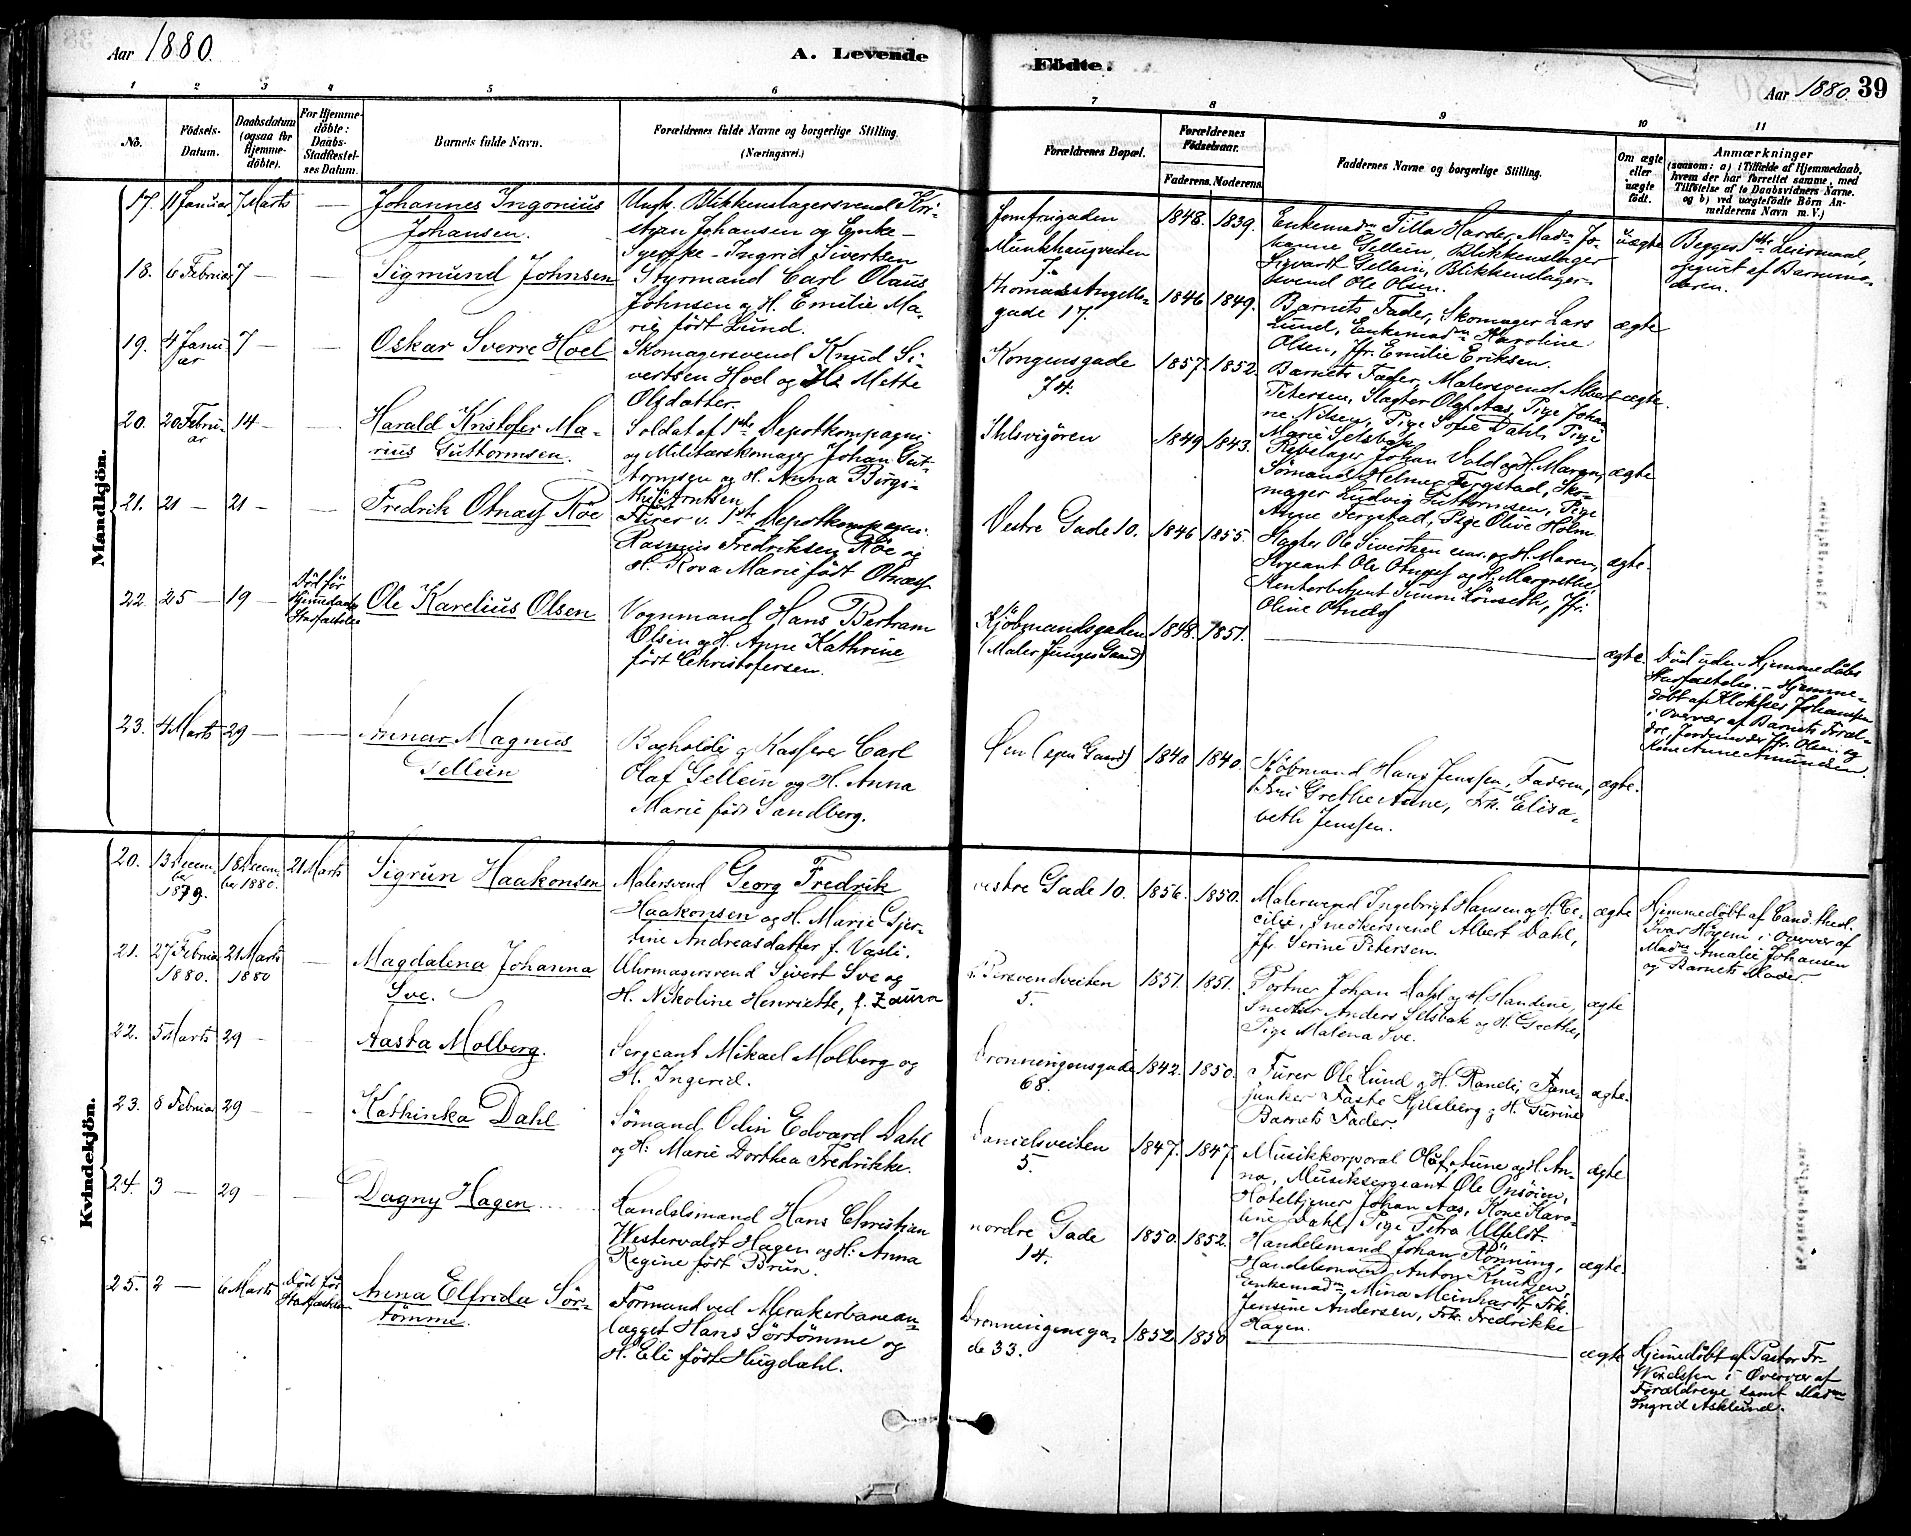 Aar 1880.
A. Levende
Födte.
Aar 1880.
39
1
2
3
4
5
6
7
8
9
10
11
No.
Födsels-
Datum.
Daabsdatum
(ogsaa for
Hjemme-
döbte).
For Hjemme-
döbte:
Daabs-
Stadfæstel-
ses Datum.
Barnets fulde Navn.
Forældrenes fulde Navne og borgerlige Stilling.
(Næringsvei.)
Forældrenes Bopæl.
Forældrenes
Födselsaar.
Faderens.
Moderens.
Faddernes Navne og borgerlige Stilling.
Om ægte
eller
uægte
födt.
Anmærkninger
(saasom: a) i Tilfælde af Hjemmedaab,
hvem der har forrettet samme, med
Tilföielse af to Daabsvidners Navne.
og b) ved uægtefödte Börn An-
melderens Navn m. V.)
Mandkjön.
17. 11 Januar 7 Marts —
Johannes Ingonius
Johansen.
Ungk. Blikkenslagersvend Kri-
stian Johansen og Enke-
Syerske - Ingrid Sivertsen
Jomfrugaden
Munkhaugveiten
1848. 1839.
Enkemadm Tilla Harder, Madm Jo-
hanne Gellein, Blikkenslager
Sigvart Gellein, Blikkenslager-
svend Ole Olsen.
uægte
Begges 1ste Leiermaal,
opgivet af Barnemo-
deren.
18. 6 Februar 7 — —
Sigmund Johnsen
Styrmand Carl Olaus
Johnsen og H. Emilie Ma-
rie født Lund.
Thomas Angells-
gade 17.
1846 1849.
Barnets Fader, Skomager Lars
Lund, Enkemadm Karoline
Olsen, Jfr. Emilie Eriksen.
ægte
19. 4 Janu-
ar 7 — —
Oskar Sverre Hoel
Skomagersvend Knud Si-
vertsen Hoel og H. Mette
Olsdatter.
Kongensgade
74.
1857. 1852.
Barnets Fader, Malersvend Albert
Petersen, Slagter Olaf Aas, Pige Johan-
ne Nilsen, Pige Sofie Dahl, Pige
Marie Selsbak
ægte.
20. 20 Febru-
ar 14 — —
Harald Kristofer Ma-
rius Guttormsen.
Soldat af 1ste Depotkompagni
og Militærskomager Johan Gut-
tormsen og H. Anna Birgi-
the Arntsen
Ihlsvigören
1849 1843.
Rebslager Johan Vold og H. Maren,
Sömand Helmer Fergstad, Sko-
mager Ludvig Guttormsen, Pige
Anne Fergstad, Pige Olive Holm
ægte
21. 21 — 21 — —
Fredrik Otnæss Röe
Furer v. 1ste Depotkompagni
Rasmus Fredriksen Röe og
H. Rova Marie født Otnæss
Vestre Gade 10.
1846 1855.
Slagter Ole Sivertsen sen. og H. Maren,
Sergeant Ole Otnæss og H. Margrethe,
Simon Lönseth, Jfr.
Oline Otnæss
ægte.
22 25 — 19 —
Död för
Hjemmedaabs
Stadfæstelse
Ole Karelius Olsen
Vognmand Hans Bertram
Olsen og H. Anne Kathrine
født Christofersen.
Kjöbmandsgaden
(Maler Junges Gaard)
1848. 1851.
ægte.
Död uden Hjemmedöbs
Stadfæstelse. — Hjemme-
döbt af Klokker Johansen
i Overvær af Barnets Foræl-
dre, Jordemoder Jfr. Olsen og
Kone Anne Amundsen.
23. 4 Marts 29 — —
Annar Magnus
Gellein
Bogholder og Kasserer Carl
Olaf Gellein og H. Anna
Marie født Sandberg.
Øen (egen Gaard)
1840 1840.
Kjöbmand Hans Jenssen, Faderen,
Fru Grethe Anne, Frk. Elisa-
beth Jenssen.
ægte.
Kvindekjön.
20. 13 Decem-
ber
1879. 18 Decem-
ber 1880. 21 Marts
Sigrun Haakonsen
Malersvend Georg Fredrik
Haakonsen og H. Marie Gjer-
tine Andreasdatter f. Vasli.
vestre Gade 10.
1856. 1850.
Malersvend Ingebrigt Hansen og H. Ce-
cilie, Snedkersvend Albert Dahl,
Jfr. Serine Petersen.
ægte
Hjemmedöbt af Cand. theol.
Ivar Höyem i Overvær af
Madm Amalie Johansen
og Barnets Moder.
21. 27 Februar
1880. 21 Marts
1880 —
Magdalena Johanna
Sve.
Uhrmagersvend Sivert Sve og
H. Nikoline Henriette, f. Zaura
Persvendveiten
5.
1851. 1851.
Portner Johan Dahl og H. Handine,
Snedker Anders Selsbak og H. Grethe,
Pige Malena Sve.
ægte
22. 5 Marts 29 — —
Aasta Molberg.
Sergeant Mikael Molberg og
H. Ingerid.
Dronningensgade
68.
1842. 1850.
Furer Ole Lund og H. Randi, Fane-
junker Faste Kjelsberg og H. Gurine
Barnets Fader.
ægte.
23. 8 Februar 29 — —
Kathinka Dahl
Sömand Odin Edvard Dahl
og H: Marie Dorthea Fredrikke.
Danielsveiten
5.
1847. 1847
Musikkorporal Oluf Aune og H. An-
na, Musiksergeant Ole Onsöien,
Hoteltjener Johan Aas, Kone Karo-
line Dahl, Pige Petra Ulfeldt.
ægte
24. 3 — 29 — —
Dagny Hagen
Handelsmand Hans Christian
Westervaldt Hagen og H: Anna
Regine født Brun.
nordre Gade
14.
1850. 1852.
Handelsmand Johan Rönning,
Handelsmand Anton Knutzen,
Enkemadm Mina Meinhardt, Frk.
Jensine Andersen, Frk. Fredrikke
Hagen.
ægte.
25. 2 — 6 Marts
Död för
Stadfæstelsen
Anna Elfrida Sör-
tömme.
Formand ved Merakerbanean-
lægget Hans Sörtömme og
H. Eli født Hugdahl.
Dronningensga-
de 33.
1852. 1850
ægte
Hjemmedöbt af Pastor Fr.
Wexelssen i Overvær af
Forældrene samt Madm
Ingrid Asklund.